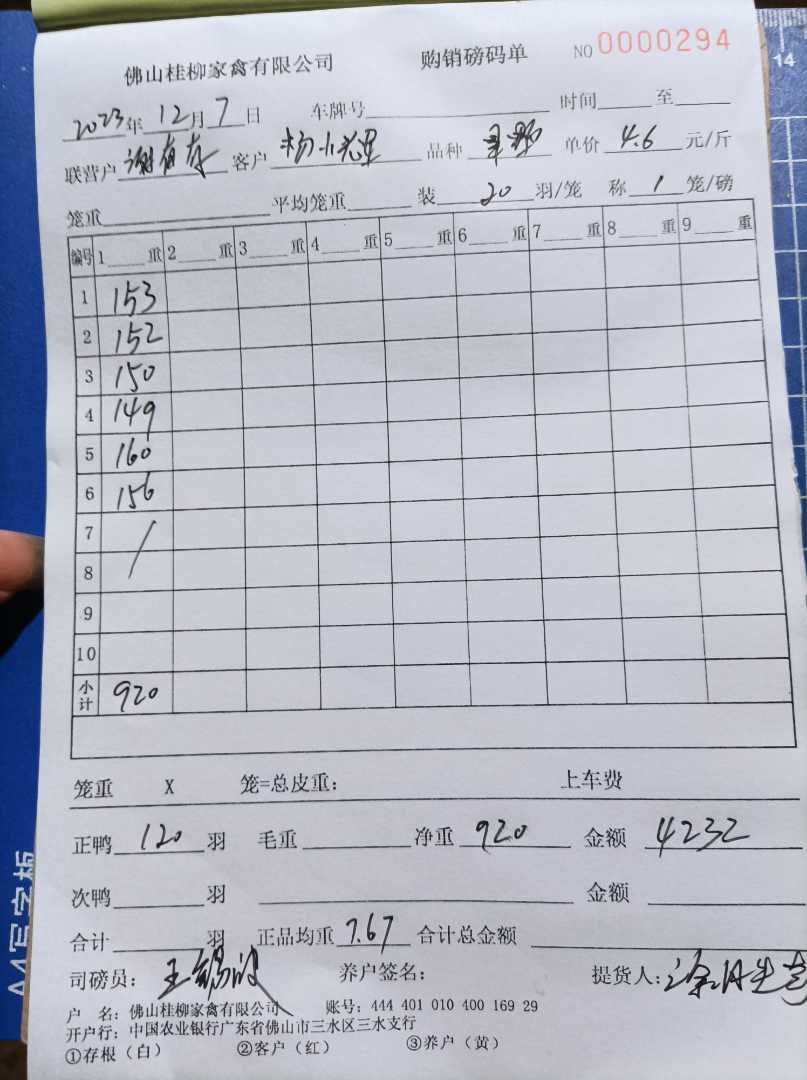 佛山桂柳家禽有限公司 购销磅码单 NO 0000294
14
2023年12月7日 车牌号 时间 至
联营户 谢有存 客户 杨小 品种 单价 4.6 元/斤
笼重 平均笼重 装 20 羽/笼 称 1 笼/磅
编号 1 重 2 重 3 重 4 重 5 重 6 重 7 重 8 重 9 重
1 153
2 152
3 150
4 149
5 160
6 156
7 /
8
9
10
小计 920
笼重 X 笼=总皮重： 上车费
正鸭 120 羽 毛重 净重 920 金额 4232
次鸭 羽 金额
合计 羽 正品均重 7.67 合计总金额
司磅员： 王锡波 养户签名： 提货人：
户 名：佛山桂柳家禽有限公司 账号：444 401 010 400 169 29
开户行：中国农业银行广东省佛山市三水区三水支行
①存根（白） ②客户（红） ③养户（黄）
A4写字板